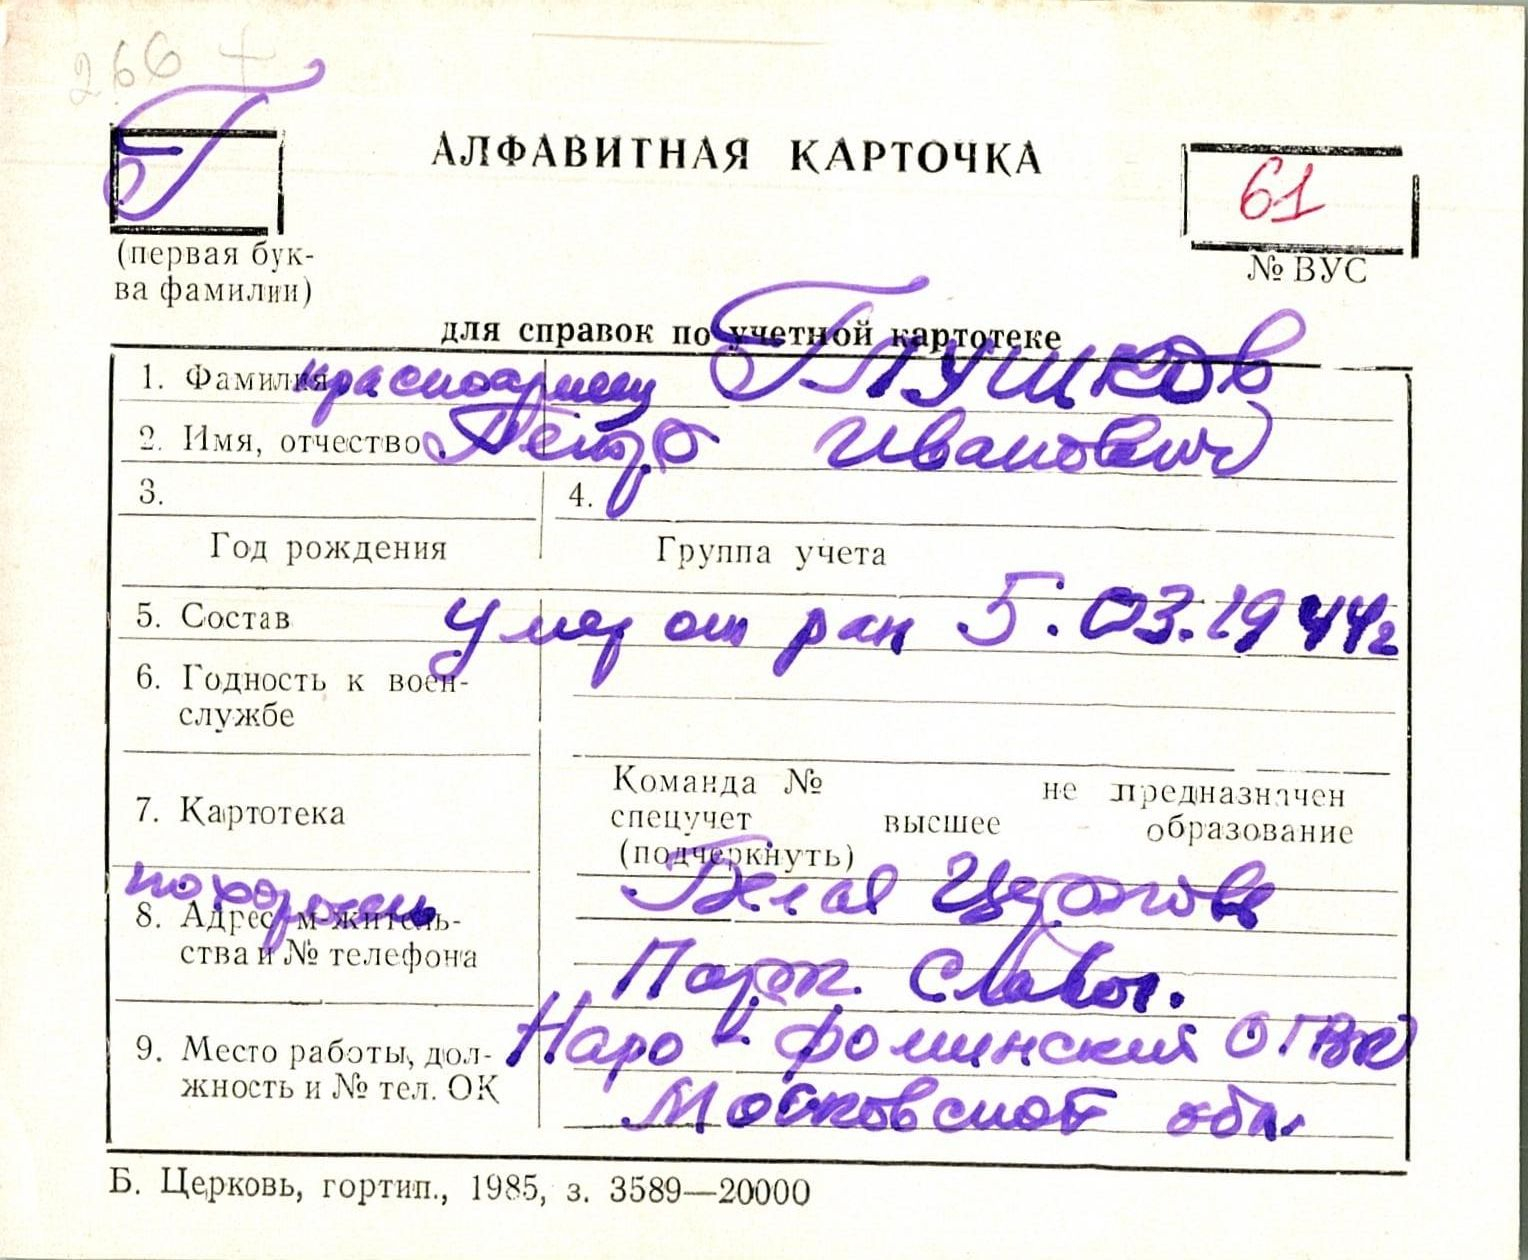 266 +
Г
АЛФАВИТНАЯ КАРТОЧКА
61
(первая бук-
ва фамилии)
№ ВУС
для справок по учетной картотеке
1. Фамилия красноармеец Глушков
2. Имя, отчество Петр Иванович
3.
4.
Год рождения
Группа учета
5. Состав умер от ран 5.03.1944г
6. Годность к воен-
службе
Команда № не предназначен
7. Картотека
спецучет высшее образование
(подчеркнуть)
похоронен Белая Церковь
8. Адрес м-житель-
ства и № телефона
Парк Славы.
9. Место работы, дол-
жность и № тел. ОК
Наро-Фоминский ОГВК
Московской обл.
Б. Церковь, гортип., 1985, з. 3589—20000